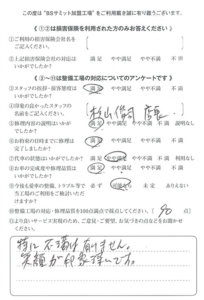 この度は"BSサミット加盟工場"をご利用頂き誠に有り難うございます。
《①②は損害保険を利用された方のみお答えください》
①ご利用の損害保険会社名を
ご記入ください。
②上記損害保険会社の対応は
いかがでしたか?
満足 やや満足 やや不満 不満
《③~⑪は整備工場の対応についてのアンケートです》
③スタッフの挨拶・接客態度は
いかがでしたか?
満足 やや満足 やや不満 不満
④印象の良かったスタッフの
名前をご記入ください。
杉山俊司 店長
⑤修理内容の説明はいかが
でしたか?
満足 やや満足 やや不満 不満 説明なし
⑥お約束の日時までに修理は
完了しましたか?
満足 やや満足 やや不満 不満
⑦代車の状態はいかがでしたか?
満足 やや満足 やや不満 不満 利用なし
⑧お車の完成度や修理品質は
いかがでしたか?
満足 やや満足 やや不満 不満
⑨今後も愛車の整備、トラブル等で
当工場のご利用をご検討いただ
けますか?
必ず 可能な限り 未定 ありえない
⑩整備工場の対応・修理品質を100点満点で採点してください。( 90 点)
⑪より良いサービス実現のため、ご意見・ご要望、お気づきの点などをお聞かせ
ください。
特に不満は有りません。
笑顔が印象強いです。